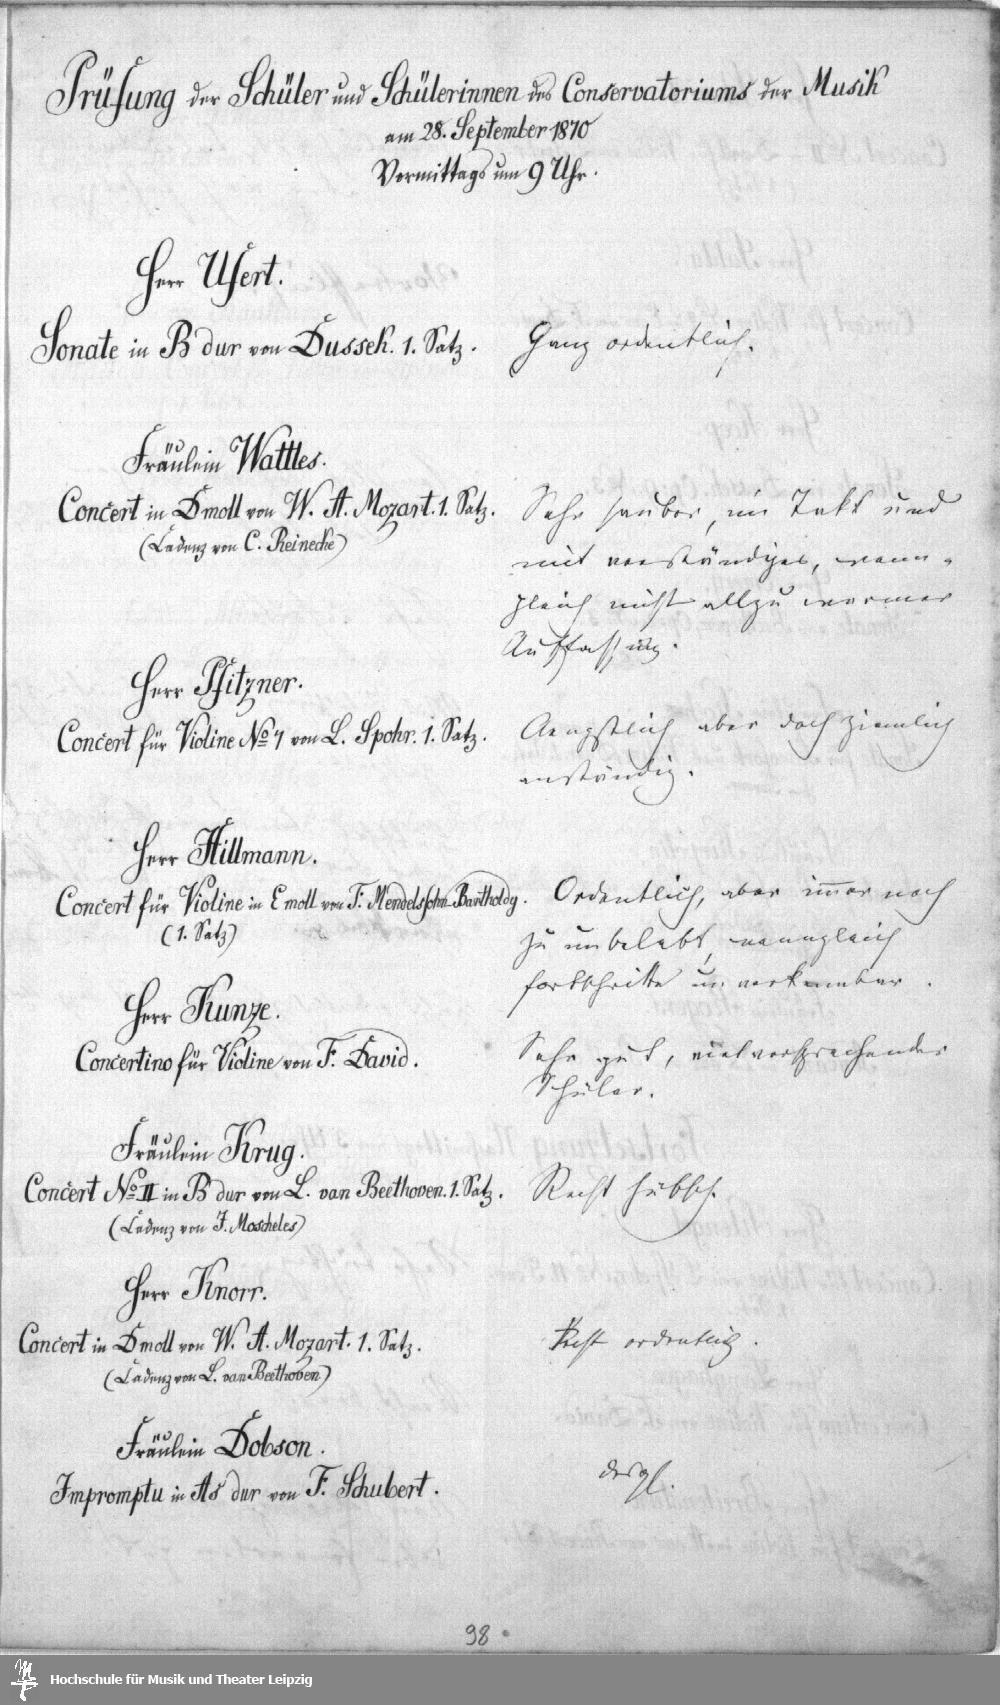 Prüfung der Schüler und Schülerinnen des Conservatoriums der Musik
am 28. September 1870
Vormittags um 9 Uhr.
Herr Ufert.
Sonate in B dur von Dussek. 1. Satz. Ganz ordentlich.
Fräulein Wattles.
Concert in D moll von W. A. Mozart. 1. Satz. Sehr sauber, im Takt und
(Cadenz von C. Reinecke)
mit verständiger, wenn-
gleich nicht allzu warmer
Auffassung.
Herr Pfitzner.
Concert für Violine No 7 von L. Spohr. 1. Satz. Aengstlich aber doch ziemlich
anständig.
Herr Hillmann.
Concert für Violine in E moll von F. Mendelssohn-Bartholdy. Ordentlich, aber immer noch
(1. Satz)
zu unbelebt, wenngleich
Fortschritte unverkennbar.
Herr Kunze.
Concertino für Violine von F. David. Sehr gut, vielversprechender
Schüler.
Fräulein Krug.
Concert No II in B dur von L. van Beethoven. 1. Satz. Recht hübsch.
(Cadenz von J. Moscheles)
Herr Knorr.
Concert in D moll von W. A. Mozart. 1. Satz. Recht ordentlich.
(Cadenz von L. van Beethoven)
Fräulein Dobson.
Impromptu in As dur von F. Schubert. desgl.
98
Hochschule für Musik und Theater Leipzig